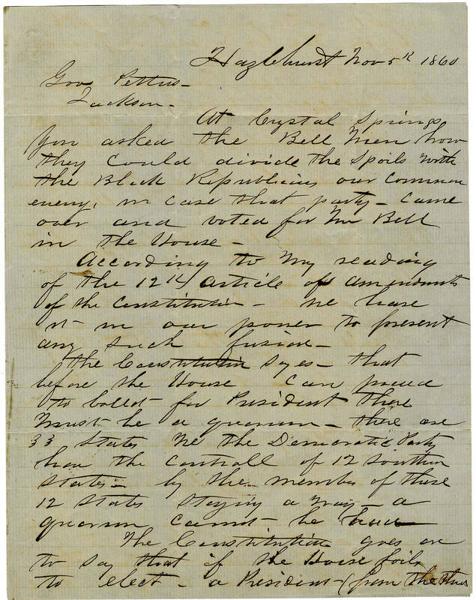 Hazlehurst Nov 5th 1860
Gov Pettus-
Jackson-
At Crystal Springs
you asked the Bell Men how
they could divide the Spoils with
the Black Republicins our common
enemy, in case that party- came
over and voted for Mr Bell
in the House-
According to my reading
of the 12th article of amendments
of the Constitution- We have
it in our power to prevent
any such fusion-
The Constitution says- that
before the House can proceed
to ballot- for President there
must be a quorum- there are
33 States We the Democratic Party
have the controll of 12 Southern
States- by the member of these
12 States staying away- a
quorum cannot- be had
The Constitution goes on
to say that if the House fails
to elect- a President (from the